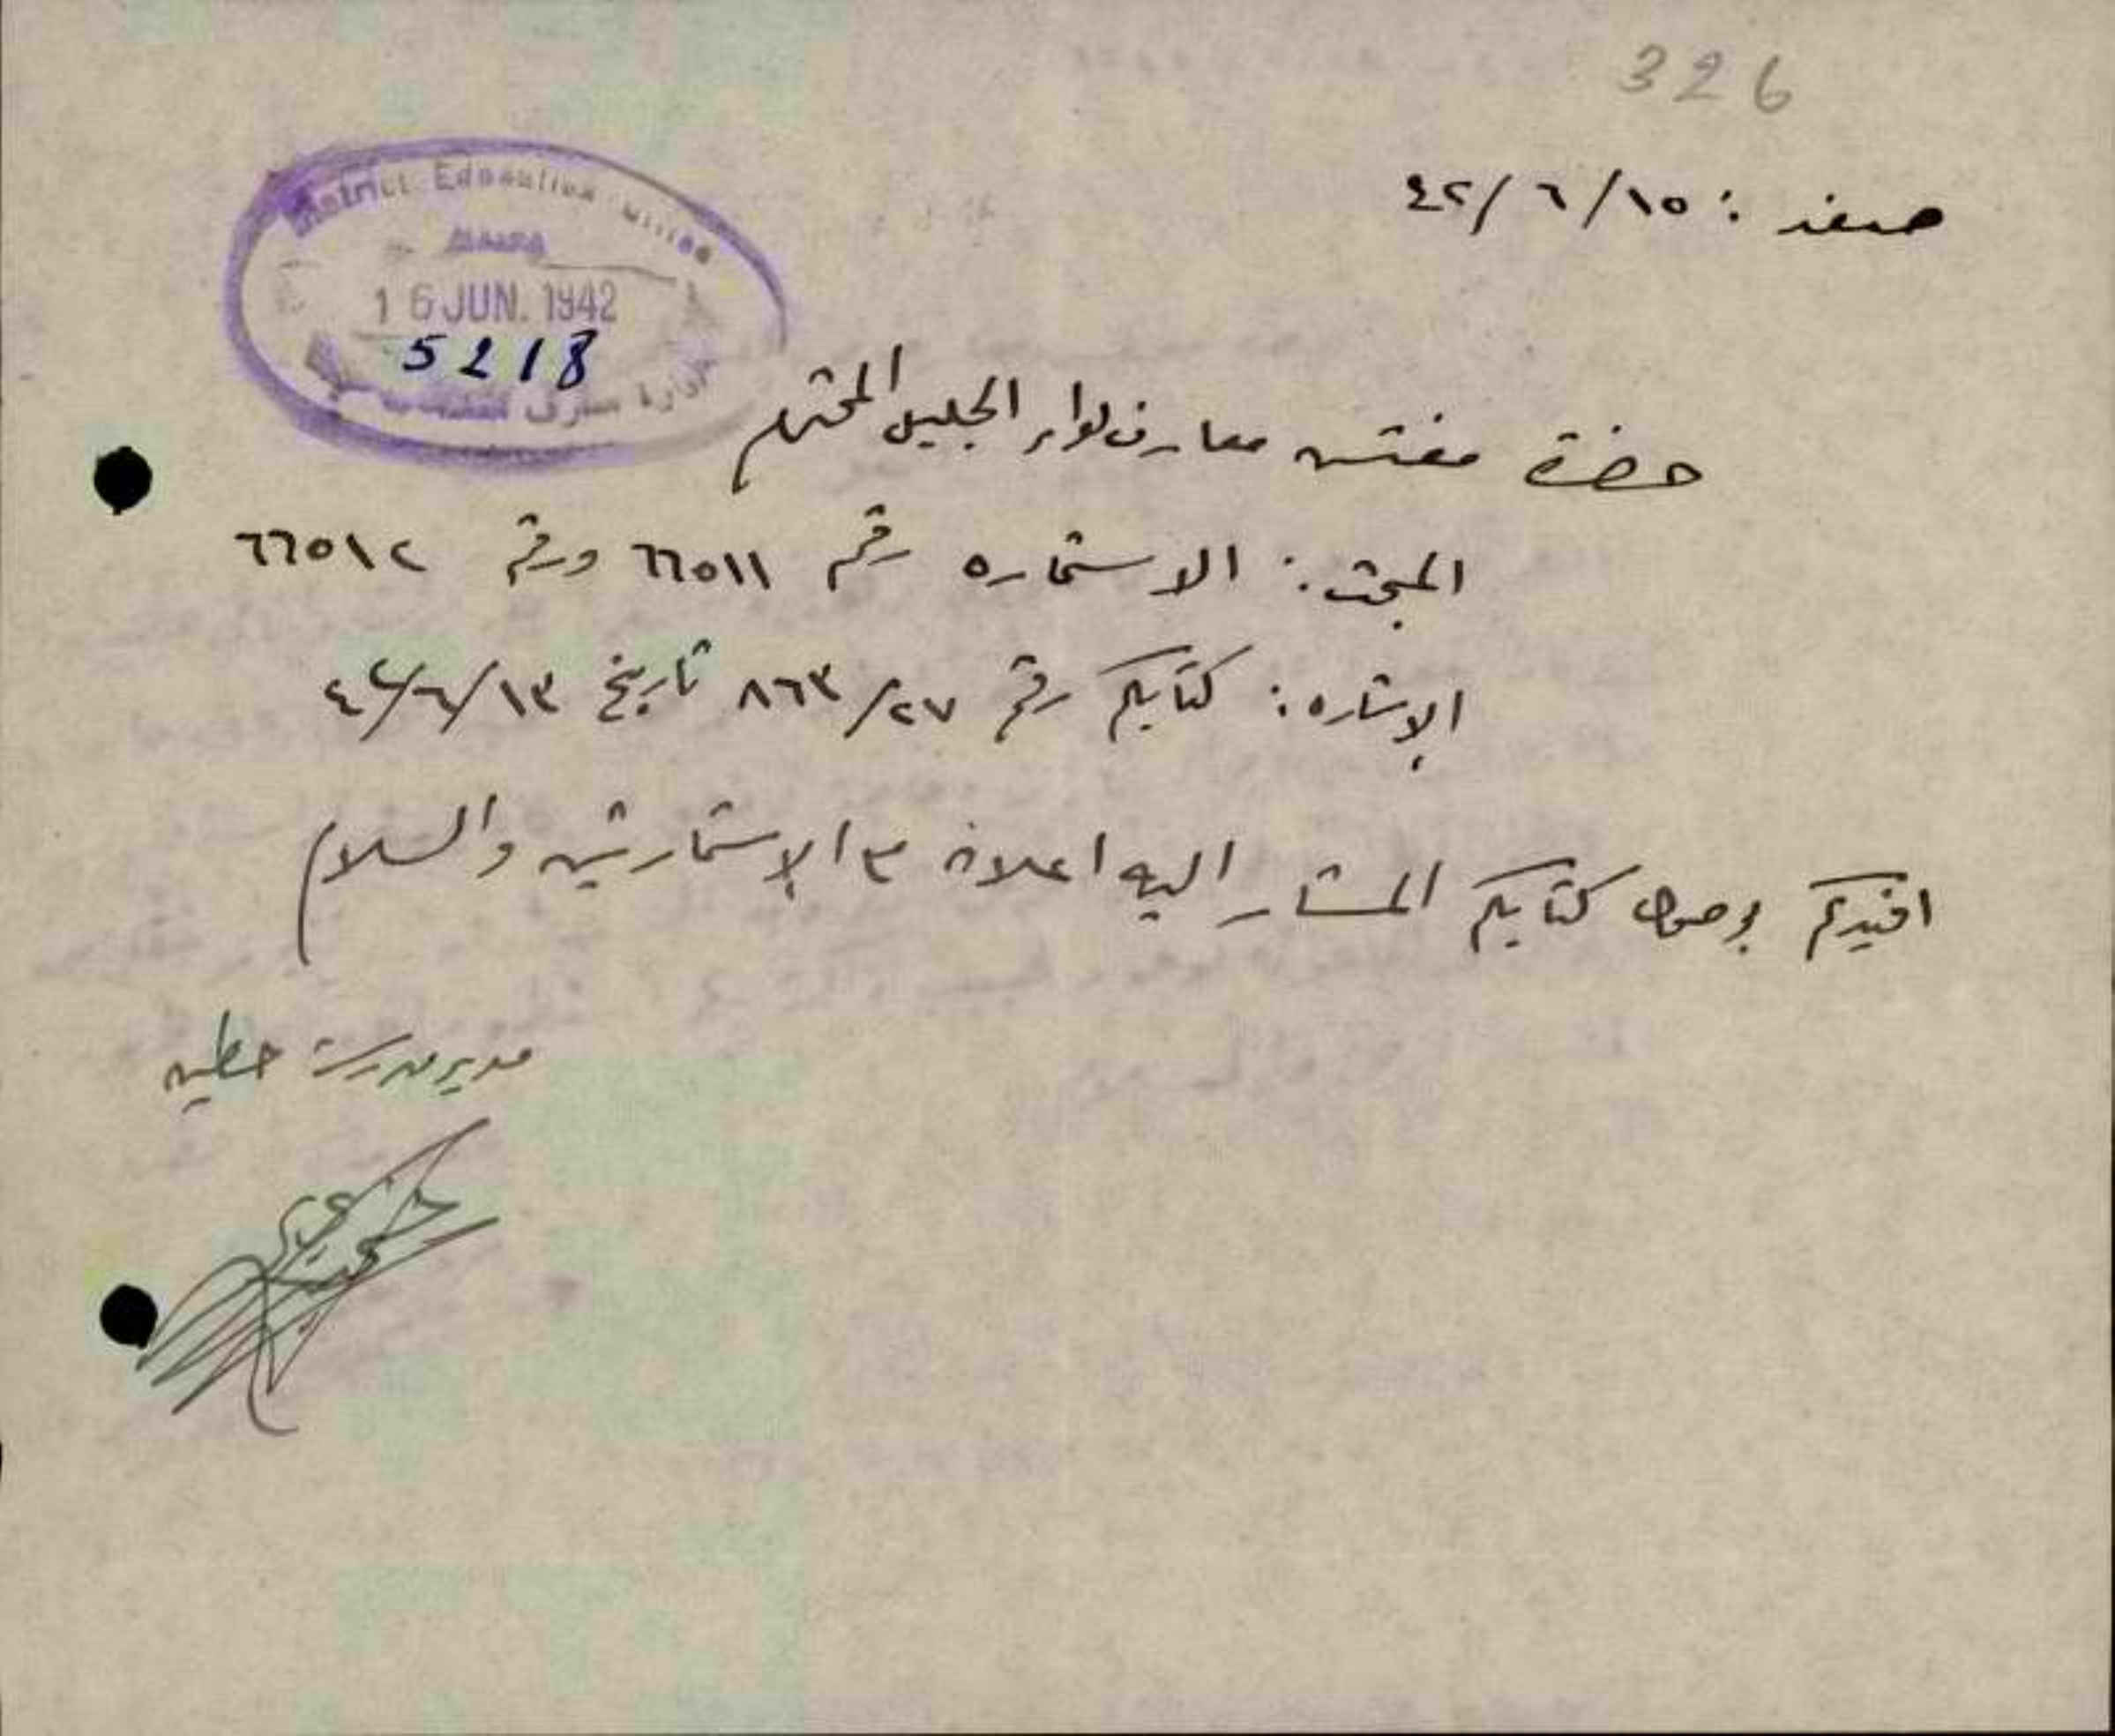 326
صفد : ١٥/٦/٤٢
District Education Office
HAIFA
16 JUN. 1942
5218
ادارة معارف
حضرة مفتش معارف لواء الجليل المحترم
المبحث : الاستماره رقم ٦٦٥١١ ورقم ٦٦٥١٢
الإشاره : كتابكم رقم ٨٦٣/٢٧ تاريخ ١٣/٦/٤٢
افيدكم بوصول كتابكم المشار اليه اعلاه مع الإستمارتين والسلام
مدير مدرسة حطين